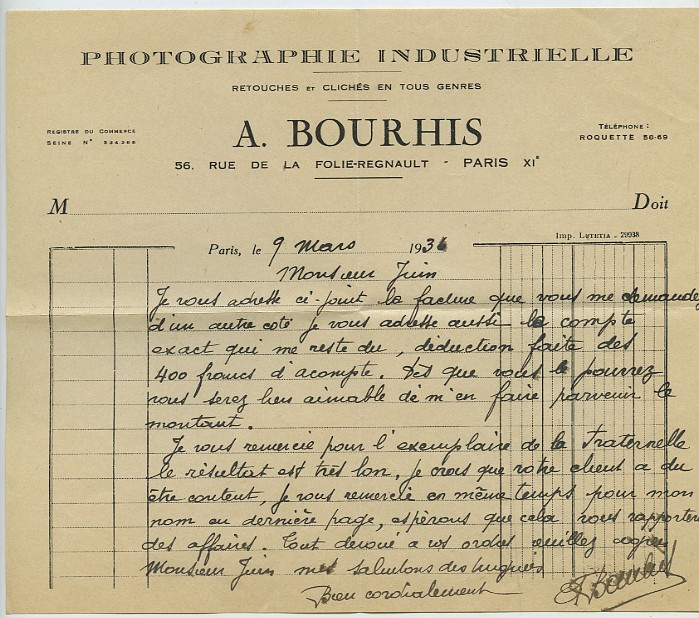 PHOTOGRAPHIE INDUSTRIELLE
RETOUCHES ET CLICHÉS EN TOUS GENRES
REGISTRE DU COMMERCE
SEINE N°
A. BOURHIS
TÉLÉPHONE :
ROQUETTE 56-69
56, RUE DE LA FOLIE-REGNAULT - PARIS XIE
M
Doit
Imp. LUTETIA - 79938
Paris, le 9 Mars 1936
Monsieur Juin
Je vous adresse ci-joint la facture que vous me demandez
d'un autre coté je vous adresse aussi le compte
exact qui me reste du, déduction faite des
400 francs d'acompte. Dès que vous le pourrez
vous serez bien aimable de m'en faire parvenir le
montant.
Je vous remercie pour l'exemplaire de la Fraternelle
le résultat est très bon, je crois que votre client a du
être content, je vous remercie en même temps pour mon
nom au dernière page, espérons que cela vous rapportera
des affaires. Tout dévoué a vos ordres veuillez agréer
Monsieur Juin mes salutations
Bien cordialement
A Bourhis